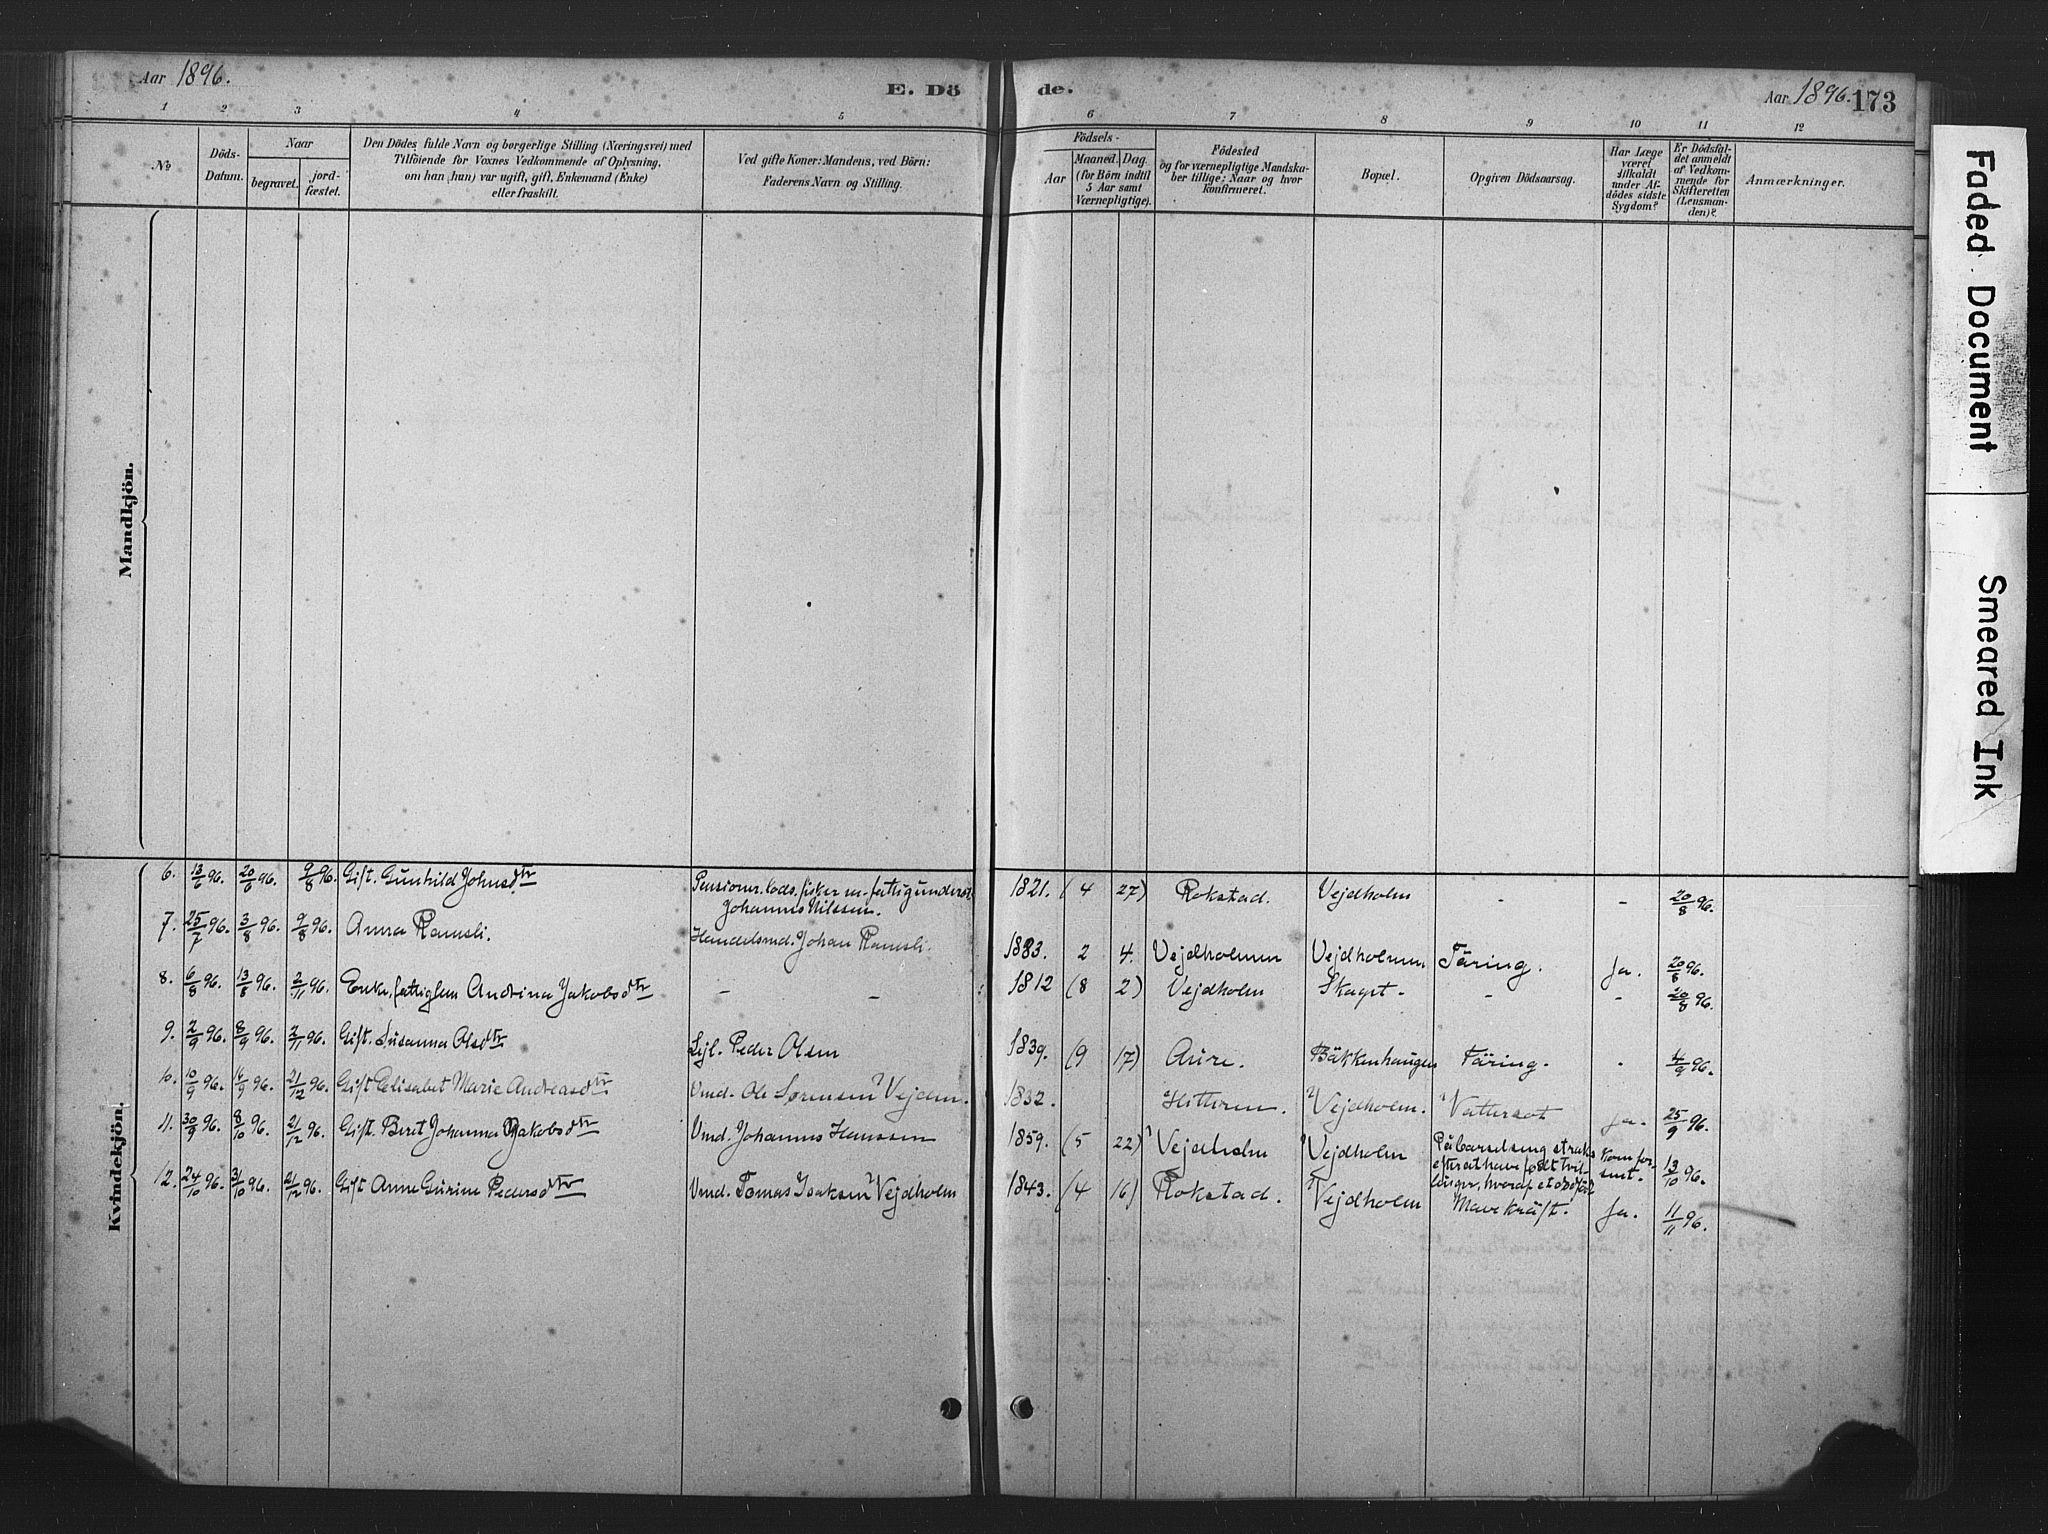 Aar 1896.
E. Dö
de.
Aar 1896. 173
1 2 3 4 5 6 7 8 9 10 11 12
No
Döds-Datum.
Naar
begravet.
jord-fæstet.
Den Dödes fulde Navn og borgerlige Stilling (Næringsvei) med
Tilföiende for Voxnes Vedkommende af Oplysning,
om han (hun) var ugift, gift, Enkemand (Enke)
eller fraskilt.
Ved gifte Koner: Mandens, ved Börn:
Faderens Navn og Stilling.
Födsels-
Aar
Maaned. Dag.
(for Börn indtil
5 Aar samt
Værnepligtige).
Födested
og for værnepligtige Mandska-
ber tillige: Naar og hvor
konfirmeret.
Bopæl.
Opgiven Dödsaarsag.
Har Læge
været
tilkaldt
under Af-
dödes sidste
Sygdom?
Er Dödsfal-
det anmeldt
af Vedkom-
mende for
Skifteretten
(Lensman-
den)?
Anmærkninger.
Mandkjön.
Kvindekjön.
6. 13/6 96. 20/6 96. 9/8 96. Gift. Gunhild Johnsdtr Pensionr. lods. fisker m. fattigunderst. 1821. (4 27) Rokstad. Vejdholm - - 20/8 96.
Johannes Nilssen.
7. 25/7 96. 3/8 96. 9/8 96. Anna Ramsli. Handelsmd. Johan Ramsli. 1883. 2 4. Vejdholmen Vejdholmen Täring. Ja. 20/8 96.
8. 6/8 96. 13/8 96. 2/11 96. Enke, fattiglem Andrina Jakobsdtr - - 1812 (8 2) Vejdholm Skaget. - - 20/8 96.
9. 2/9 96. 8/9 96. 2/11 96. Gift. Susanna Olsdtr Lejl. Peder Olsen 1839. (9 17) Aure. Bäkkenhaugen Täring. - 4/9 96.
10. 10/9 96. 14/9 96. 21/12 96. Gift Elisabet Marie Andreasdtr Vmd. Ole Sørensen Vejdm. 1832. Hitteren. Vejdholm. Vattersot Ja. 25/9 96.
11. 30/9 96. 8/10 96. 21/12 96. Gift. Beret Johanna Jakobsdtr Vmd. Johannes Hanssen 1859. (5 22) Vejdholm Vejdholm På barselseng straks kom for
efter at have født tvil- sent. 13/10 96.
linger, hveraf et dødfød
12. 24/10 96. 31/10 96. 21/12 96. Gift Anne Gurine Pedersdtr Vmd. Tomas Isaksen Vejdholm 1843. (4 16) Rokstad. Vejdholm Mavekräft. Ja. 11/11 96.
Faded Document
Smeared Ink